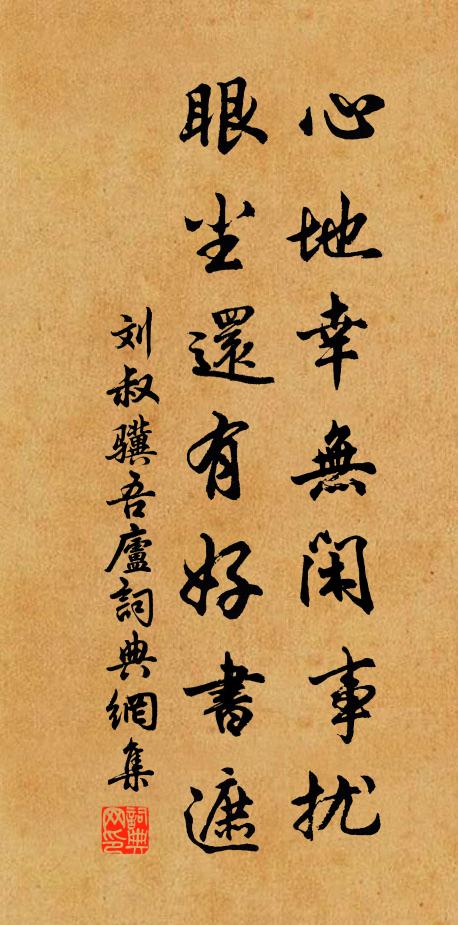 心地幸無閑事扰
眼尘還有好書遮
刘叔骥吾廬詞典網集
詞典网印